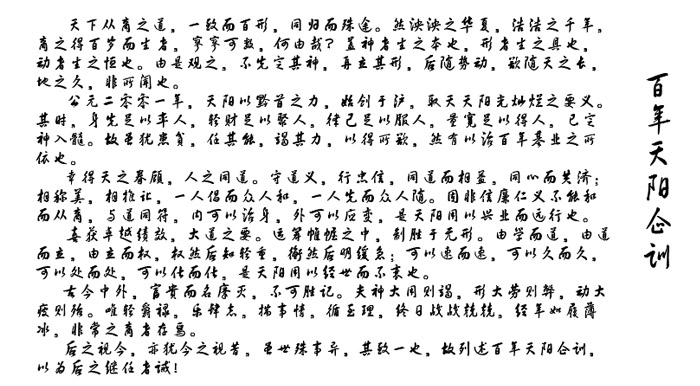 百年天阳企训
天下从商之道，一致而百形，同归而殊途。然泱泱之华夏，浩浩之千年，
商之得百岁而生者，寥寥可数，何由哉？盖神者生之本也，形者生之具也，
动者生之恒也。由是观之，不先定其神，再立其形，后随势动，欲随天之长，
地之久，非所闻也。
公元二零零一年，天阳以黔首之力，始创于沪，取天天阳光灿烂之要义。
其时，身先足以率人，轻财足以聚人，律己足以服人，量宽足以得人，已定
神入髓。故虽犹患贫，任其能，竭其力，以得所欲，然有以治百年基业之所
依也。
幸得天之眷顾，人之同道。守道义，行忠信，同道而相益，同心而共济；
相称美，相推让，一人倡而众人和，一人先而众人随。固非信廉仁义不能和
而从商，与道同符，内可以治身，外可以应变，是天阳用以兴业而远行也。
喜获卓越绩效，大道之要。运筹帷幄之中，制胜于无形。由学而道，由道
而立，由立而权，权然后知轻重，衡然后明缓急；可以速而速，可以久而久，
可以处而处，可以仕而仕，是天阳用以经世而不衰也。
古今中外，富贵而名摩灭，不可胜记。夫神大用则竭，形大劳则弊，动大
疲则殆。唯轻爵福，乐肆志，揣事情，循至理，终日战战兢兢，经年如履薄
冰，非常之商者存焉。
后之视今，亦犹今之视昔，虽世殊事异，其致一也，故列述百年天阳企训，
以为后之继任者诫！